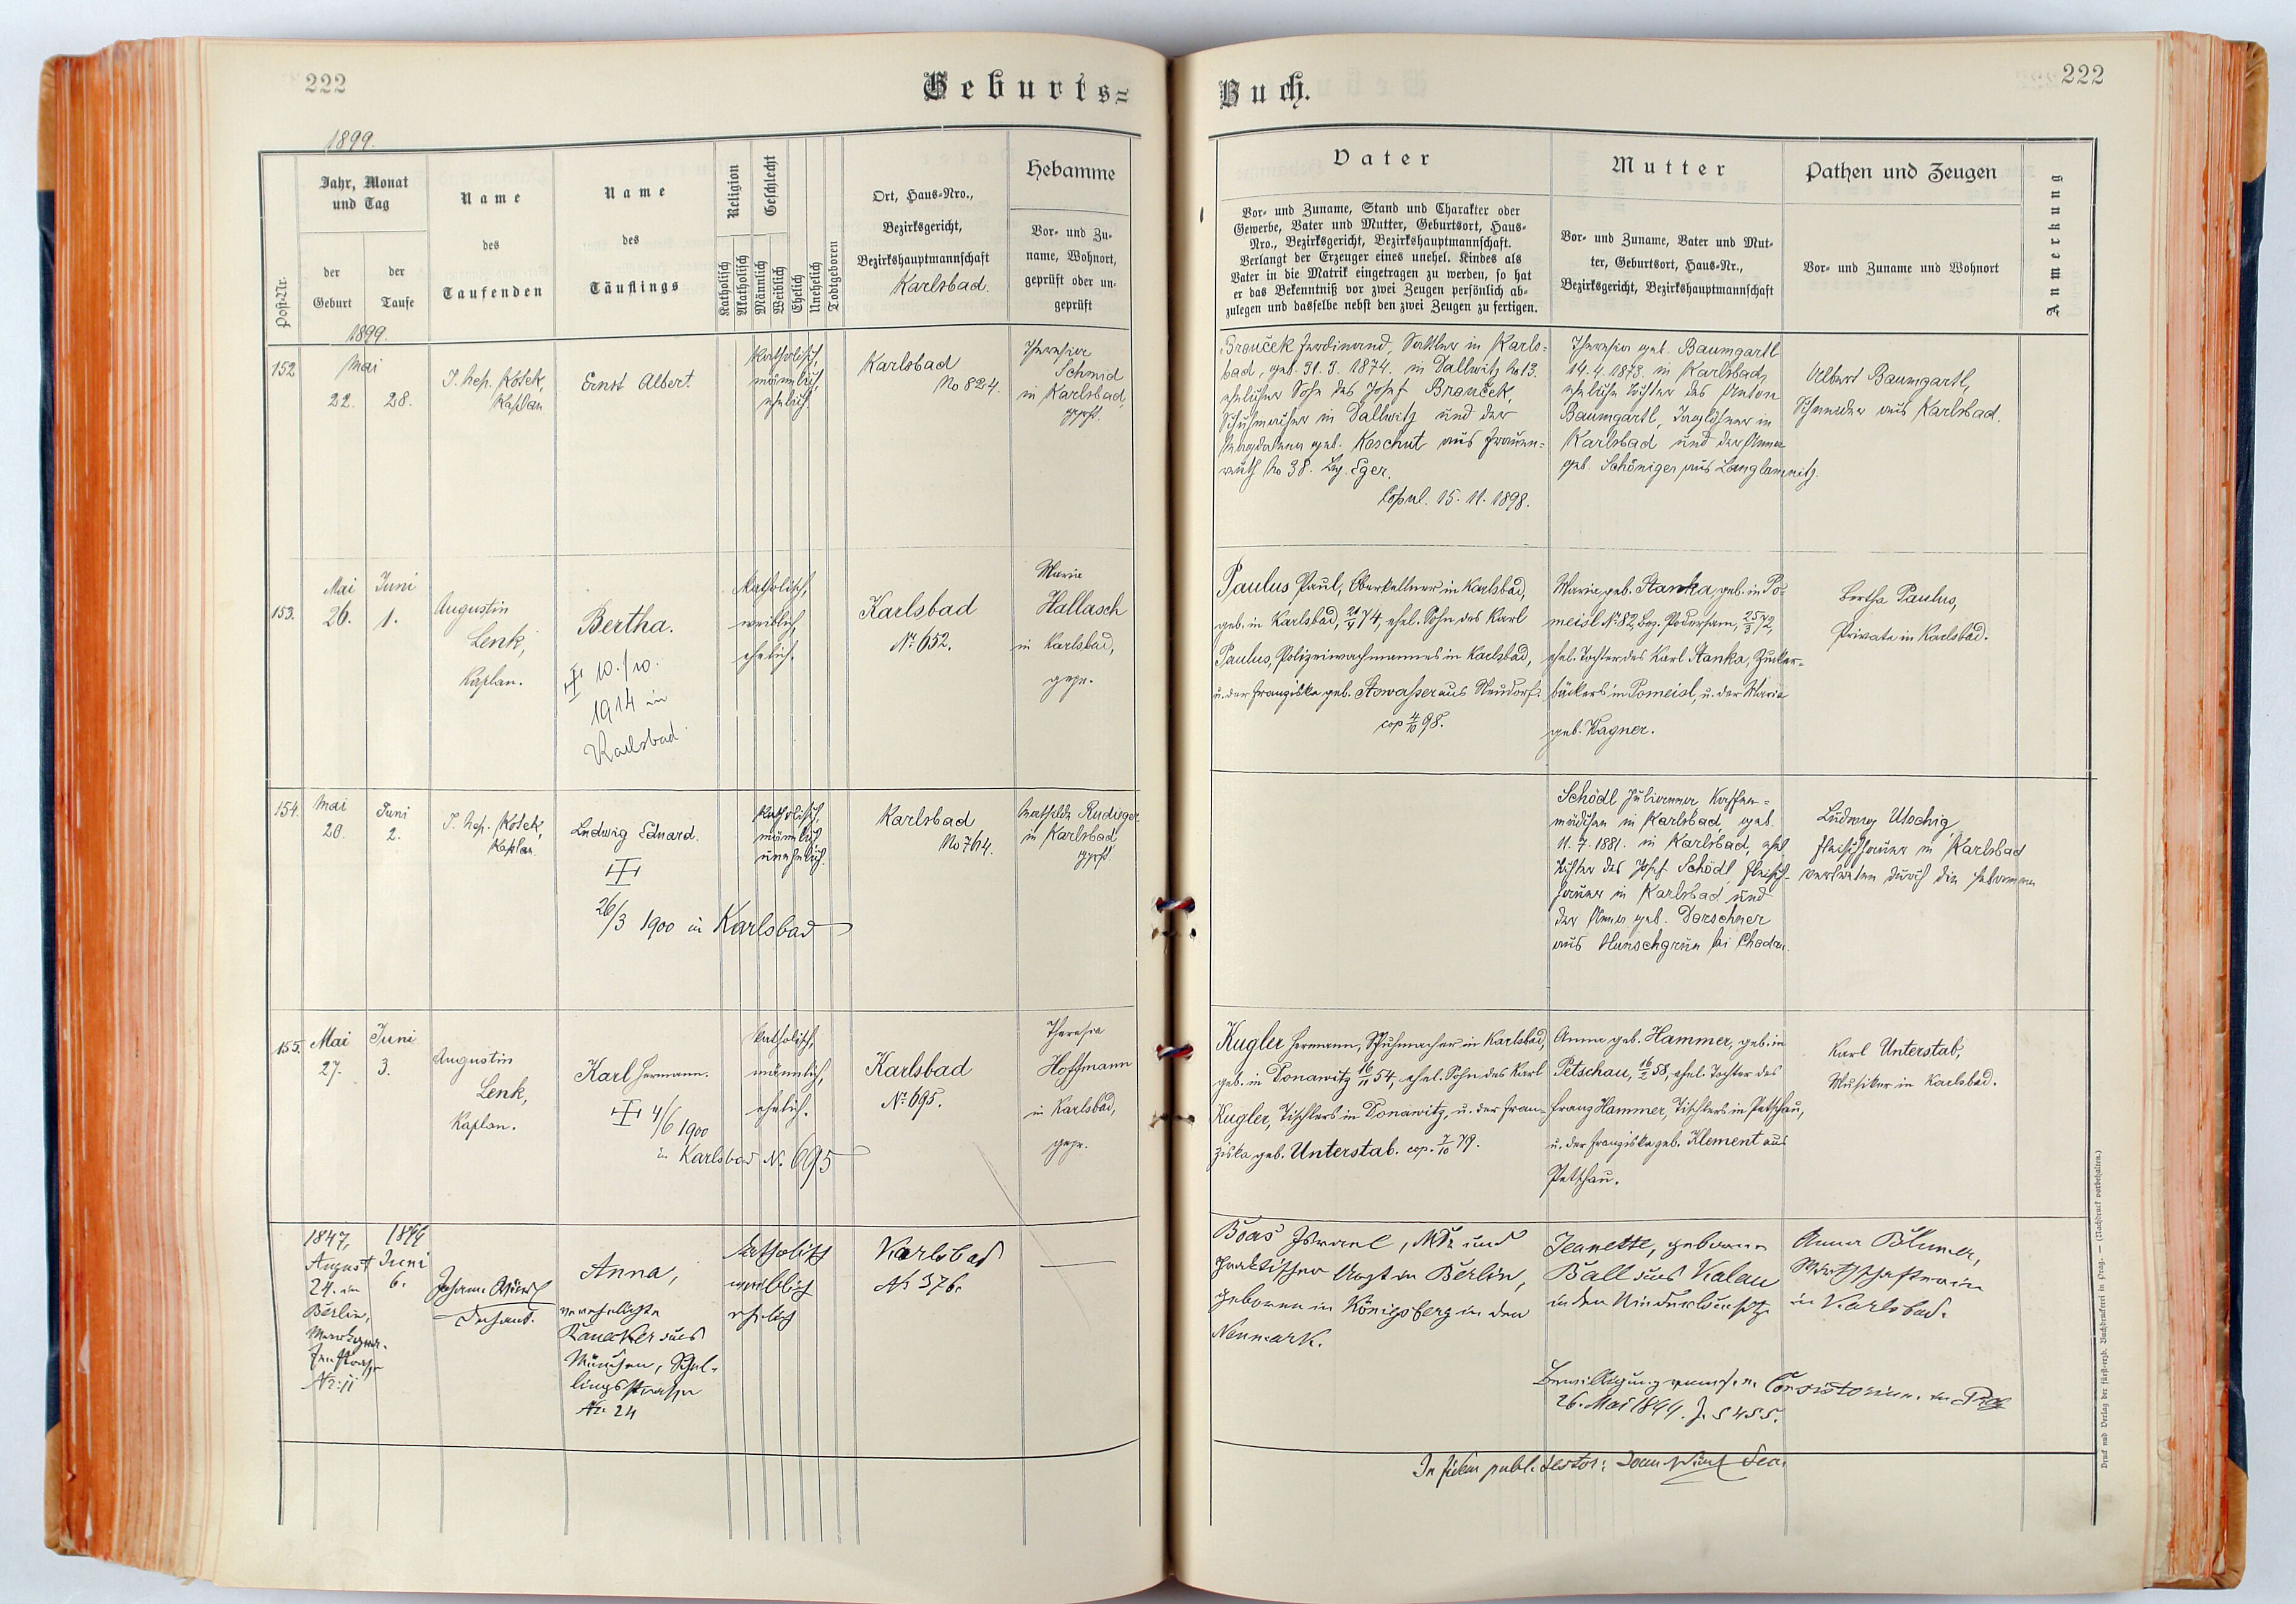 222
Geburts=
Buch.
222
1899.
Post-Nr.
Jahr, Monat
und Tag
der
Geburt
der
Taufe
Name
des
Taufenden
Name
des
Täuflings
Religion
Katholisch
Akatholisch
Geschlecht
Männlich
Weiblich
Ehelich
Unehelich
Todtgeboren
Ort, Haus-Nro.,
Bezirksgericht,
Bezirkshauptmannschaft
Karlsbad.
Hebamme
Vor- und Zu-
name, Wohnort,
geprüft oder un-
geprüft
Vater
Vor- und Zuname, Stand und Charakter oder
Gewerbe, Vater und Mutter, Geburtsort, Haus-
Nro., Bezirksgericht, Bezirkshauptmannschaft.
Verlangt der Erzeuger eines unehel. Kindes als
Vater in die Matrik eingetragen zu werden, so hat
er das Bekenntniß vor zwei Zeugen persönlich ab-
zulegen und dasselbe nebst den zwei Zeugen zu fertigen.
Mutter
Vor- und Zuname, Vater und Mut-
ter, Geburtsort, Haus-Nr.,
Bezirksgericht, Bezirkshauptmannschaft
Pathen und Zeugen
Vor- und Zuname und Wohnort
Anmerkung
1899.
152
Mai
22. 28.
J. Nep. Kosek,
Kaplan
Ernst Albert.
katholisch,
männlich,
ehelich
Karlsbad
No 824.
Theresia
Schmid
in Karlsbad,
gepft.
Brouček Ferdinand, Sattler in Karls-
bad, geb. 31. 3. 1874. in Dallwitz No 13.
ehelicher Sohn des Josef Brouček,
Schuhmacher in Dallwitz und der
Magdalena geb. Koschut aus Frauen-
reuth No 38. Bz. Eger.
Copul. 15. 11. 1898.
Theresia geb. Baumgartl
19. 4. 1873. in Karlsbad,
eheliche Tochter des Anton
Baumgartl, Taglöhner in
Karlsbad und der Anna
geb. Schöniger aus Langlamnitz.
Albert Baumgartl,
Schneider aus Karlsbad.
153.
Mai Juni
26. 1.
Augustin
Lenk,
Kaplan.
Bertha.
10./10.
1914 in
Karlsbad.
katholisch,
weiblich,
ehelich.
Karlsbad
No 652.
Maria
Hallasch
in Karlsbad,
gepr.
Paulus Paul, Oberkellner in Karlsbad,
geb. in Karlsbad, 74, ehel. Sohn des Karl
Paulus, Polizeiwachmannes in Karlsbad,
u. der Franziska geb. Stowasser aus Neudorf.
cop. 4/10 98.
Maria geb. Stanka, geb. in Po-
meisl No 82, Bez. Podersam, 25/3 72,
ehel. Tochter des Karl Stanka, Zucker-
bäckers in Pomeisl, u. der Maria
geb. Wagner.
Bertha Paulus,
Private in Karlsbad.
154.
Mai Juni
20. 2.
J. Nep. Kosek,
Kaplan
Ludwig Eduard.
26/3 1900 in Karlsbad
katholisch.
männlich
unehelich.
Karlsbad
No 764.
Mathilde Rudinger
in Karlsbad
gepft
Schödl Julianna Kaffee-
mädchen in Karlsbad, geb.
11. 7. 1881. in Karlsbad, ehel.
Tochter des Josef Schödl Fleisch-
hauer in Karlsbad und
der Anna geb. Dorschner
aus Hunschgrün bei Chodau.
Ludwig Utschig
Fleischhauer in Karlsbad
vertreten durch die Hebamme
155.
Mai Juni
27. 3.
Augustin
Lenk,
Kaplan.
Karl Hermann.
4/6 1900
in Karlsbad N. 695
katholisch,
männlich,
ehelich.
Karlsbad
No 695.
Theresia
Hoffmann
in Karlsbad,
gepr.
Kugler Hermann, Schuhmacher in Karlsbad,
geb. in Donawitz 16/11 54, ehel. Sohn des Karl
Kugler, Tischlers in Donawitz, u. der Fran-
ziska geb. Unterstab. cop. 7/10 79.
Anna geb. Hammer, geb. in
Petschau, 16/2 58, ehel. Tochter des
Franz Hammer, Tischlers in Petschau,
u. der Franziska geb. Klement aus
Petschau.
Karl Unterstab,
Musiker in Karlsbad.
1847,
August
24. in
Berlin,
Nr: 11
1899
Juni
6.
Dechant.
Anna,
verehelichte
aus
München, Schel-
lingsstrasse
Nr: 24
katholisch
weiblich
ehelich
Karlsbad
No 376.
Boas Israel, MDr. und
praktischer Arzt in Berlin,
geboren in Königsberg in der
Neumark.
Jeanette, geborene
Ball aus Kalau
in der Niederlausitz
Anna Blumer,
Wirthschafterin
in Karlsbad.
Bewilligung vom f. e. Consistorium in Prag
26. Mai 1899. Z. 5455.
In fidem publ. testor:
Druck und Verlag der fürst-erzb. Buchdruckerei in Prag. — (Nachdruck vorbehalten.)